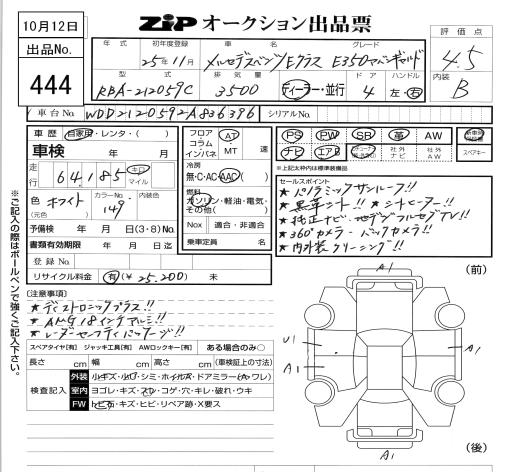 10月12日
ZIP オークション出品票
評価点
4.5
出品No.
444
年式 初年度登録 車名 グレード
25年11月 メルセデスベンツ Eクラス E350アバンギャルド
内装
B
型式 排気量 ドア ハンドル
RBA-212059C 3500 ディーラー・並行 4 左・右
車台No. WDD2120592A836396 シリアルNo.
車歴 自家用・レンタ・( )
車検 年 月
走行 64,185 キロ マイル
色 ホワイト (元色) カラーNo. 149 内装色
予備検 年 月 日(3・8)No.
書類有効期限 年 月 日迄
登録No.
リサイクル料金 有(¥ 25,200) 未
フロア コラム インパネ AT MT 速
冷房
無・C・AC・AAC( )
燃料
ガソリン・軽油・電気・その他( )
Nox 適合・非適合
乗車定員 名
PS PW SR 革 AW
ナビ エアB 社外ナビ 社外AW スペアキー
※上記太枠内は標準装備品
セールスポイント
★パノラミックサンルーフ!!
★黒革シート!! ★シートヒーター!!
★純正ナビ 地デジフルセグTV!!
★360°カメラ バックカメラ!!
★内外装クリーニング!!
[注意事項]
★ディストロニックプラス!!
★AMG18インチアルミ!!
★レーダーセーフティパッケージ!!
スペアタイヤ[有] ジャッキ工具[有] AWロックキー[有] ある場合のみ○
長さ cm 幅 cm 高さ cm (車検証上の寸法)
検査記入
外装 ルキズ・ルワ・シミ・ホイルキズ・ドアミラー(キズ・ワレ)
室内 ヨゴレ・キズ・スレ・コゲ・穴・キレ・破れ・ウキ
FW トビ石・キズ・ヒビ・リペア跡・X要ス
※ご記入の際はボールペンで強くご記入下さい。
A1 (前)
U1
A1
A1
A1 (後)